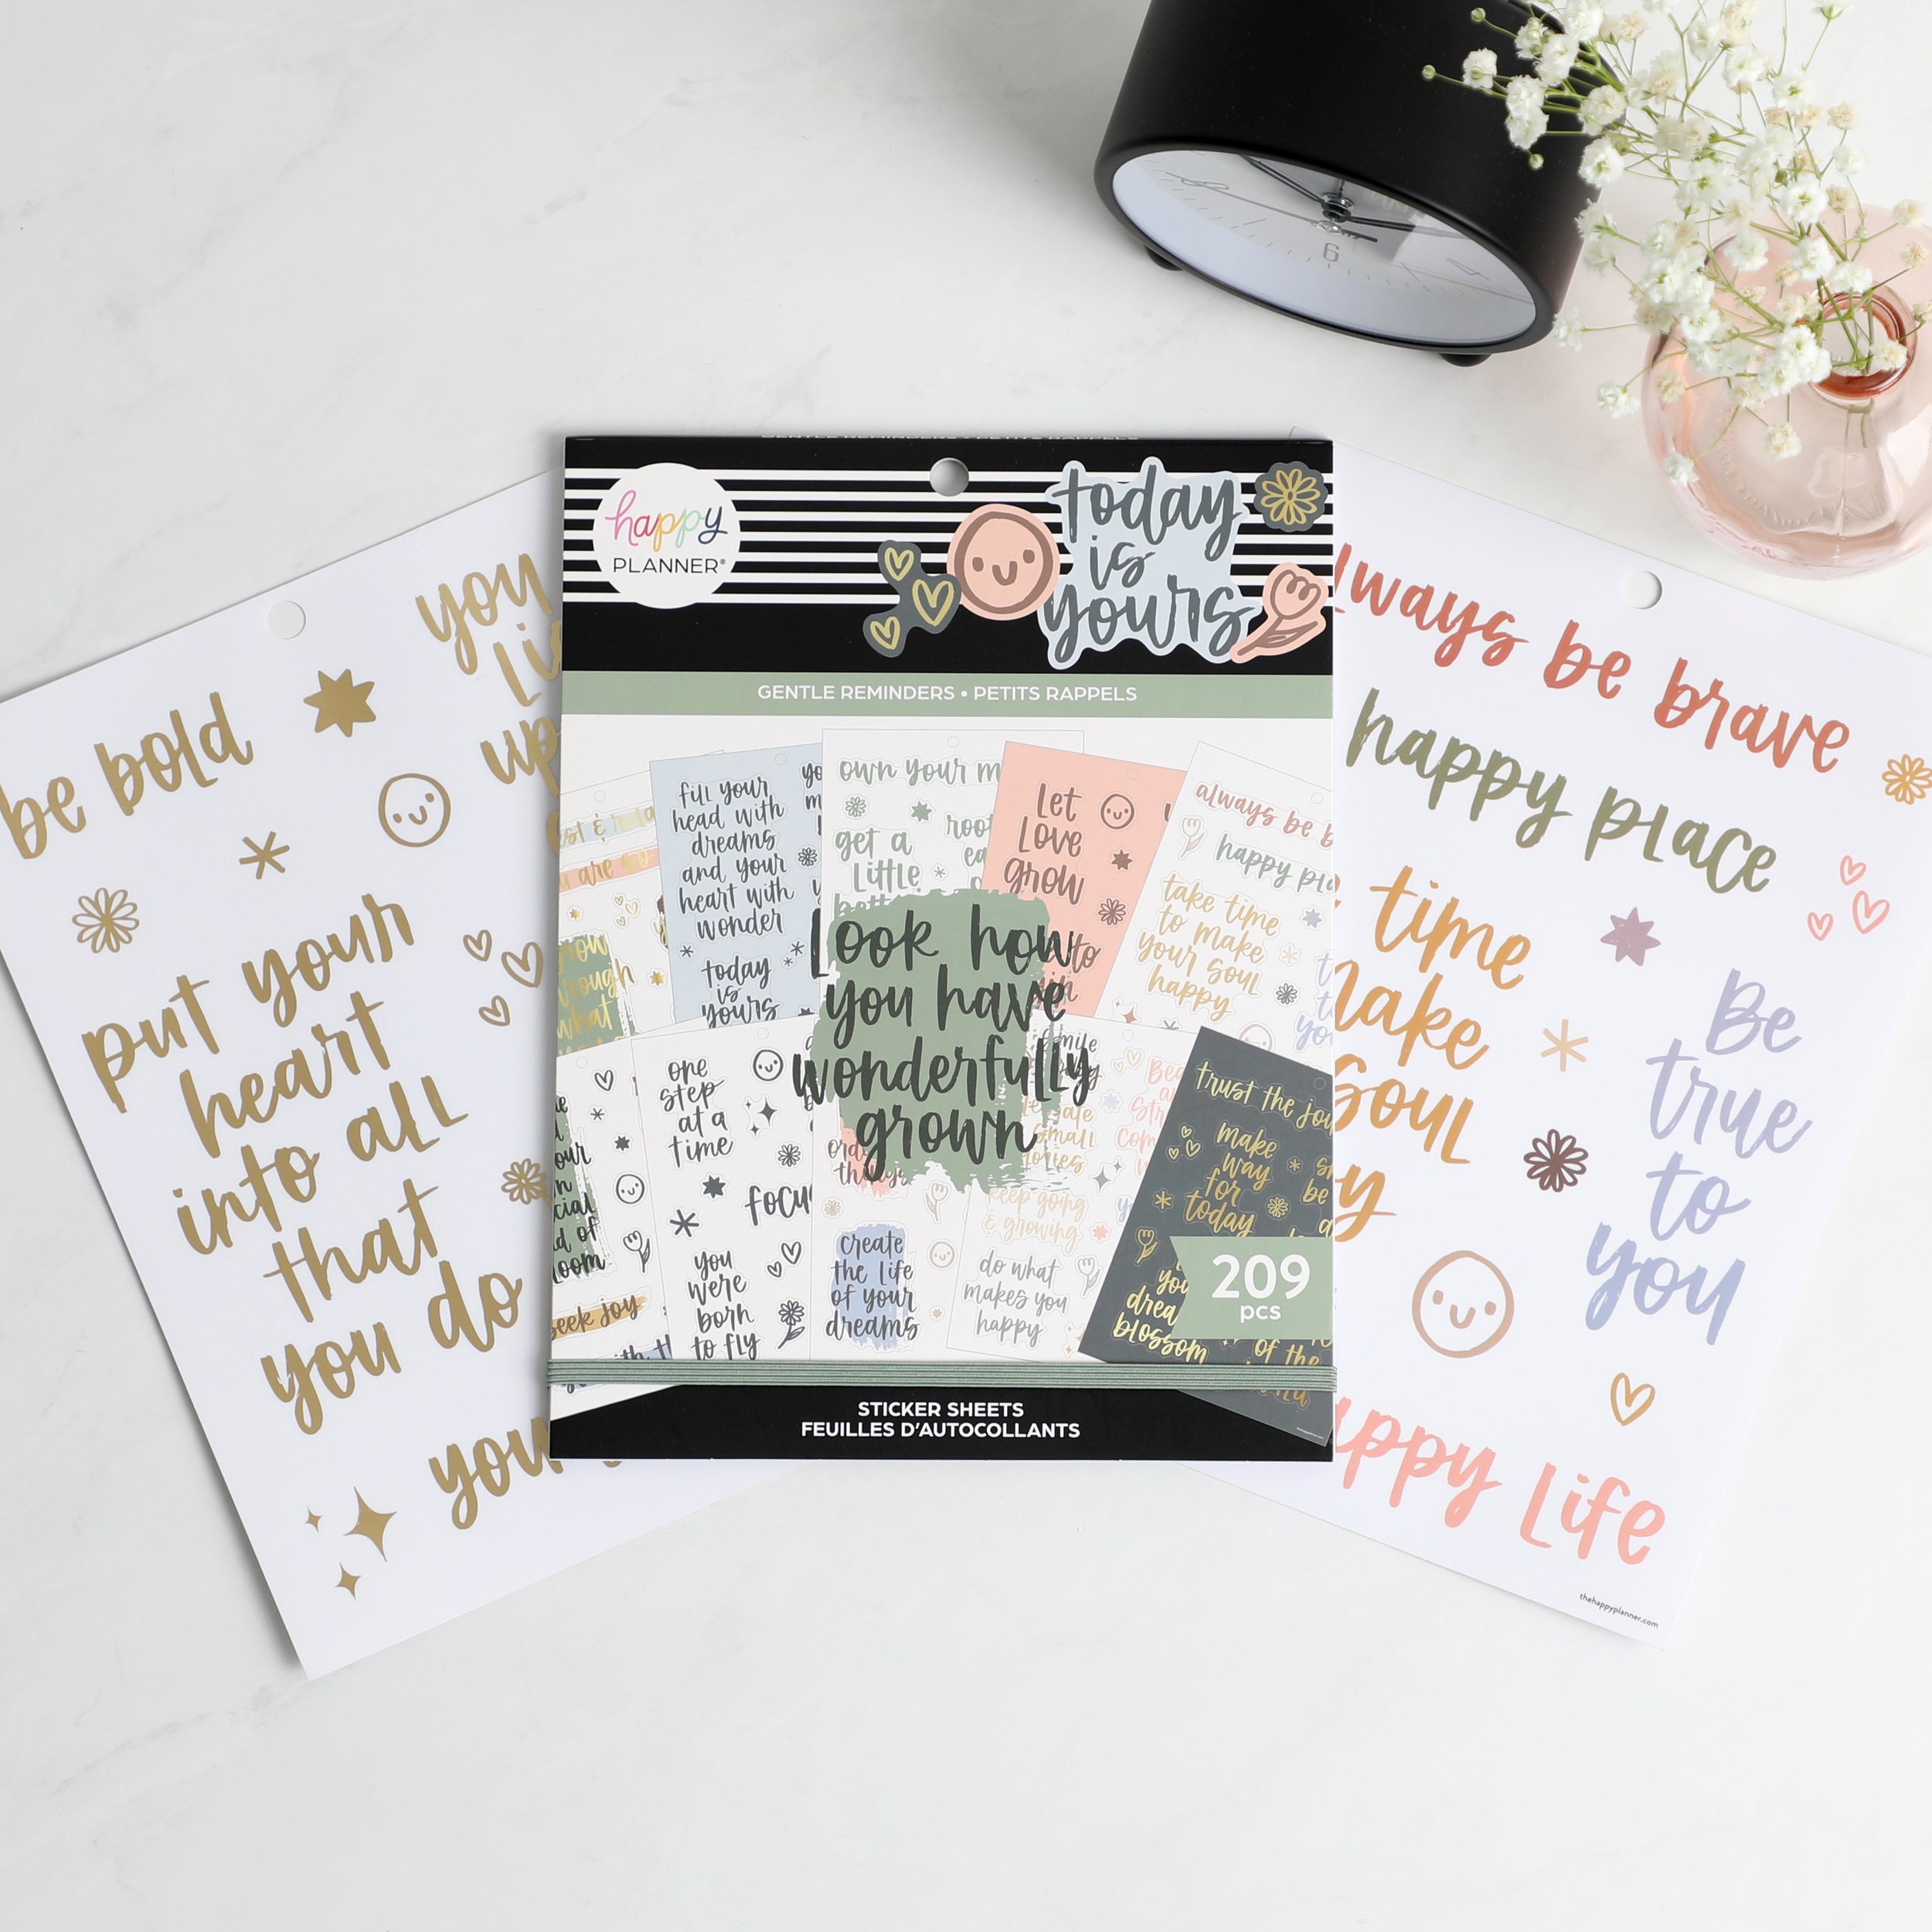 be bold
you
up
put your
heart
into all
that
you do
you
happy
PLANNER®
today
is
yours
GENTLE REMINDERS • PETITS RAPPELS
fill your
head with
dreams
and your
heart with
wonder
today
is
yours
own your
get a
little
Let
Love
grow
always be
happy
take time
to make
your soul
happy
Look how
you have
wonderfully
grown
one
step
at a
time
you
were
born
to fly
seek joy
create
the life
of your
dreams
keep going
& growing
do what
makes you
happy
trust the
make
way
for
today
blossom
of the
209
pcs
STICKER SHEETS
FEUILLES D'AUTOCOLLANTS
always be brave
happy place
time
make
soul
Be
true
to
you
happy Life
thehappyplanner.com
6